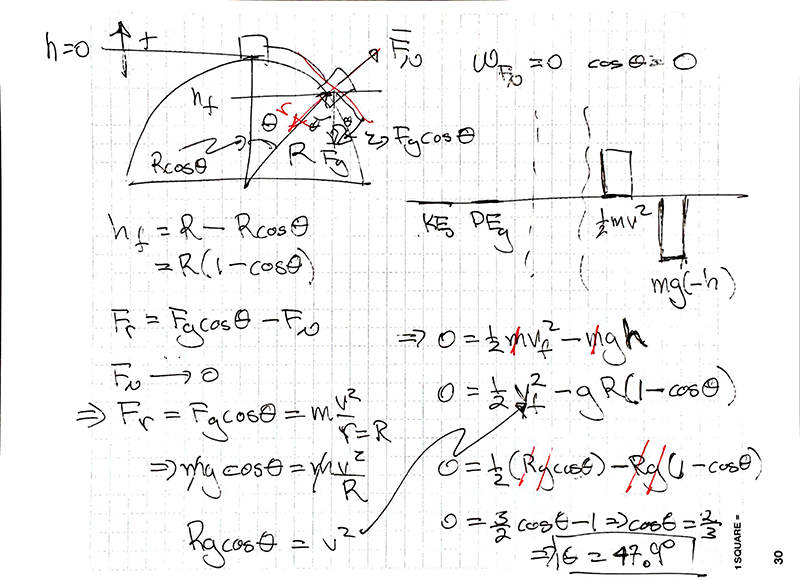 h=0 +
F_N
W_{F_N} = 0 cosθ = 0
h_f
r
θ θ
Rcosθ R F_g F_g cosθ
KE_g PE_g ½mv²
mg(-h)
h_f = R - Rcosθ
= R(1-cosθ)
F_r = F_g cosθ - F_N
F_N → 0
⇒ F_r = F_g cosθ = m v²/r=R
⇒ mg cosθ = mv²/R
Rgcosθ = v²
⇒ 0 = ½mv_f² - mgh
0 = ½v_f² - gR(1-cosθ)
0 = ½(Rgcosθ) - Rg(1-cosθ)
0 = 3/2 cosθ - 1 ⇒ cosθ = 2/3
⇒ θ = 47.9°
1 SQUARE =
30